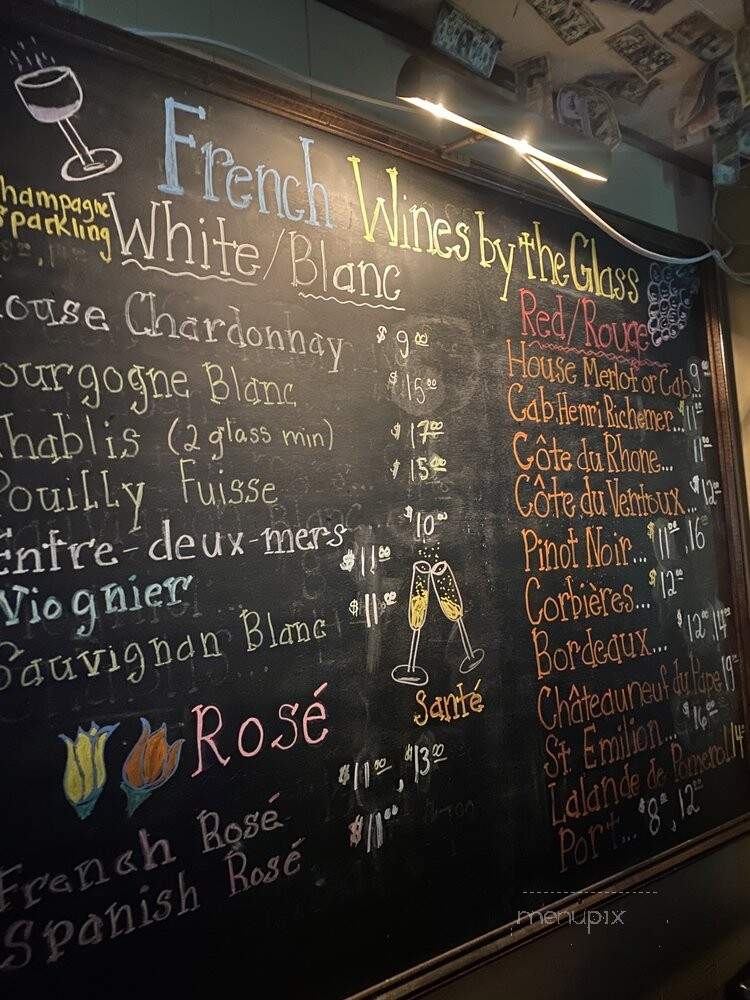 French Wines by the Glass
hampagne
parkling
White/Blanc
ouse Chardonnay $9.00
ourgogne Blanc $15.00
hablis (2 glass min) $17.00
Pouilly Fuisse $15.00
Entre-deux-mers $10.00
Viognier $11.00
Sauvignan Blanc $11.00
Santé
Rosé
French Rosé $11.00, $13.00
Spanish Rosé $11.00
Red/Rouge
House Merlot or Cab.. 9.00
Cab Henri Richemer... $11.00
Côte du Rhone... 11.00
Côte du Ventoux... $12.00
Pinot Noir... $11.00, 16.00
Corbières... $12.00
Bordeaux... $12.00, 14.00
Châteauneuf du Pape 19.00
St Emilion... $16.00
Lalande de Pomerol 14
Port... $8.00, 12.00
menupix